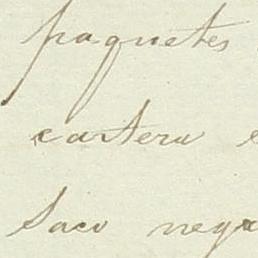 paquetes
cartera
saco negr